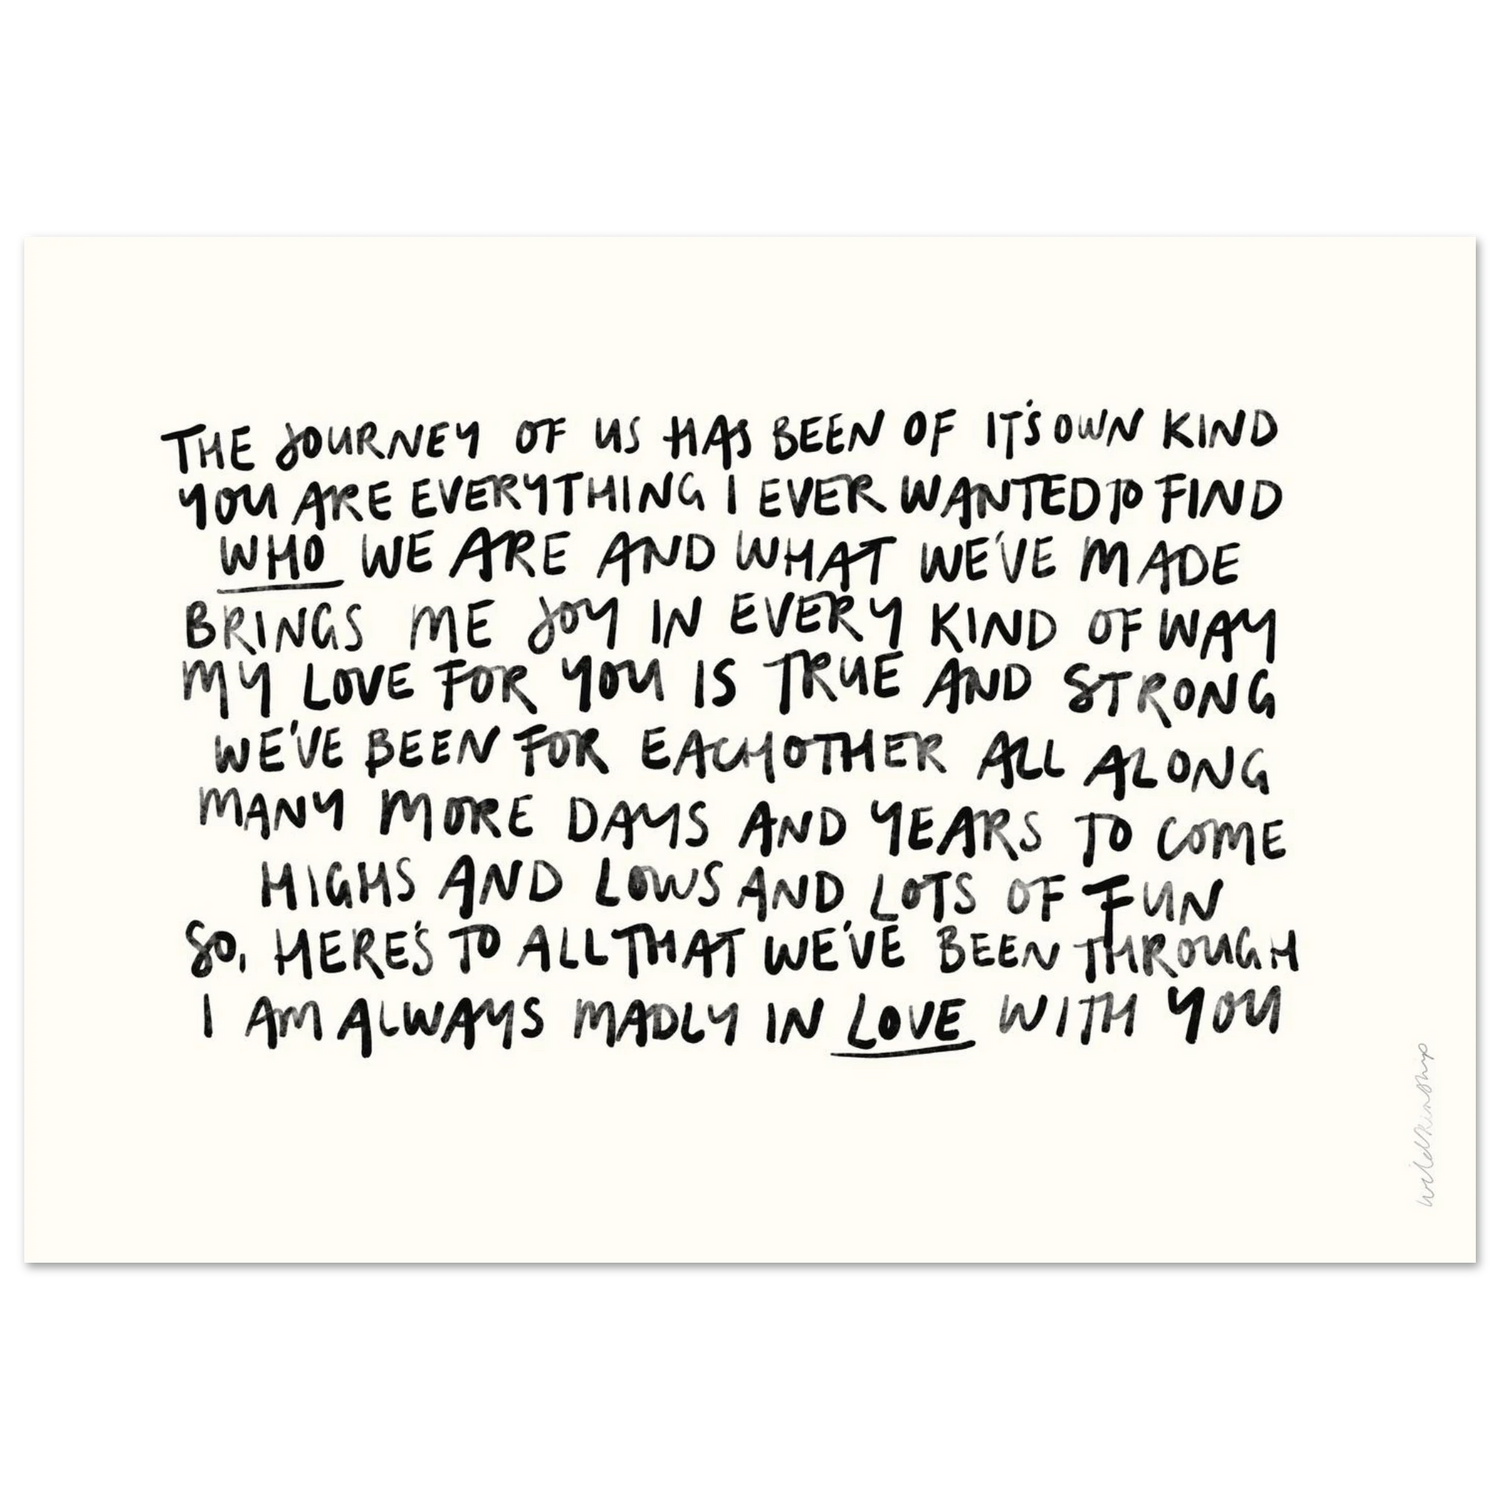 THE JOURNEY OF US HAS BEEN OF IT'S OWN KIND
YOU ARE EVERYTHING I EVER WANTED TO FIND
WHO WE ARE AND WHAT WE'VE MADE
BRINGS ME JOY IN EVERY KIND OF WAY
MY LOVE FOR YOU IS TRUE AND STRONG
WE'VE BEEN FOR EACHOTHER ALL ALONG
MANY MORE DAYS AND YEARS TO COME
HIGHS AND LOWS AND LOTS OF FUN
SO, HERE'S TO ALL THAT WE'VE BEEN THROUGH
I AM ALWAYS MADLY IN LOVE WITH YOU
wildkinship